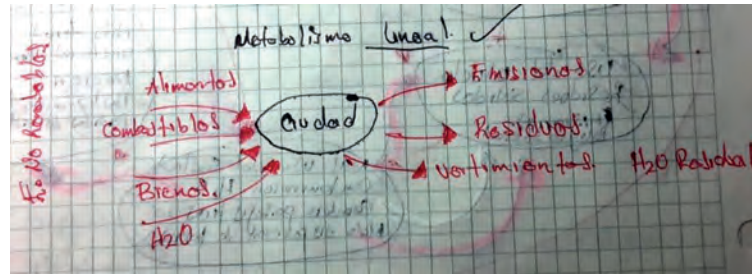 Metabolismo lineal.
Alimentos
Combustibles
Bienes.
H2O
Ciudad
Emisiones
Residuos.
Vertimientos. H2O Residual